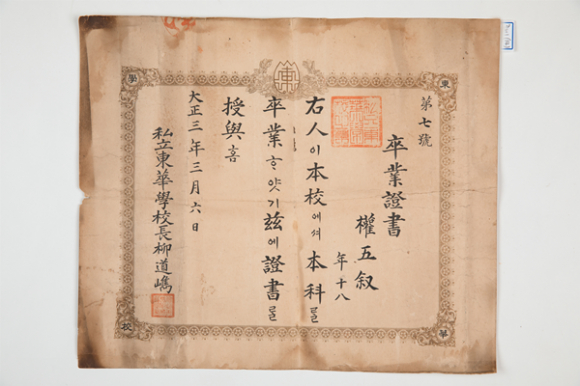 第七號
卒業證書
權五叙
年十八
右人이本校에셔本科를
卒業ᄒᆞ얏기玆에證書를
授與喜
大正三年三月六日
私立東華學校長柳道嶠
東
華
學
校
東